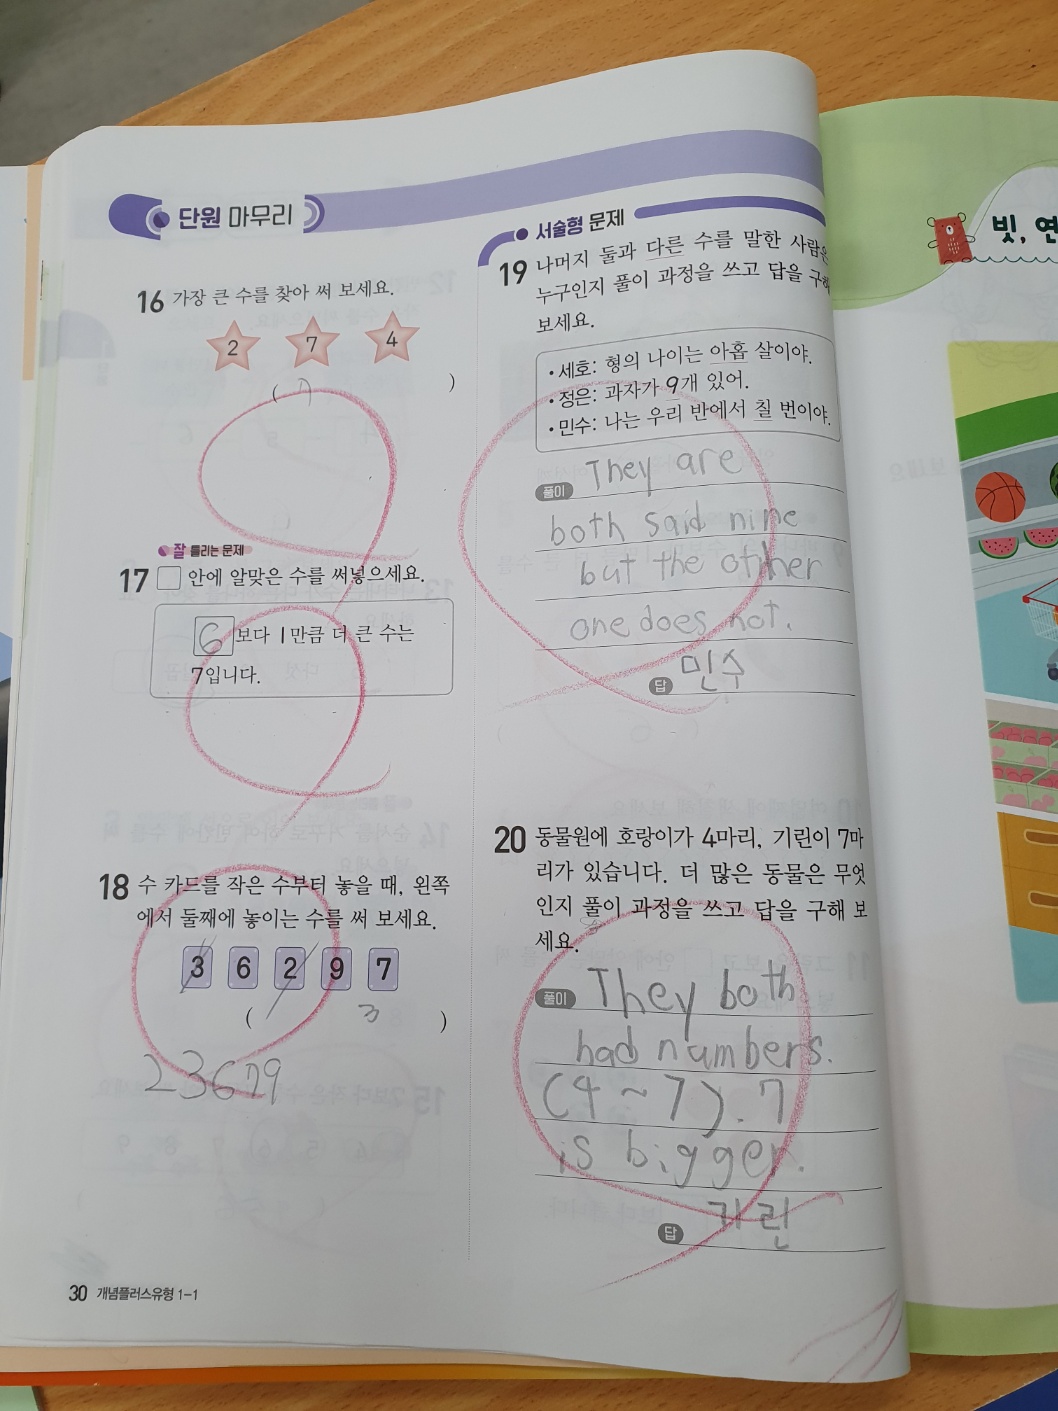 단원 마무리
16 가장 큰 수를 찾아 써 보세요.
2 7 4
( 7 )
잘 틀리는 문제
17 □ 안에 알맞은 수를 써넣으세요.
6 보다 1만큼 더 큰 수는
7입니다.
18 수 카드를 작은 수부터 놓을 때, 왼쪽
에서 둘째에 놓이는 수를 써 보세요.
3 6 2 9 7
( 3 )
23679
30 개념플러스유형 1-1
서술형 문제
19 나머지 둘과 다른 수를 말한 사람은
누구인지 풀이 과정을 쓰고 답을 구해
보세요.
• 세호: 형의 나이는 아홉 살이야.
• 정은: 과자가 9개 있어.
• 민수: 나는 우리 반에서 칠 번이야.
풀이 They are
both said nine
but the other
one does not.
답 민수
20 동물원에 호랑이가 4마리, 기린이 7마
리가 있습니다. 더 많은 동물은 무엇
인지 풀이 과정을 쓰고 답을 구해 보
세요.
풀이 They both
had numbers.
(4~7). 7
is bigger.
답 기린
빗, 연